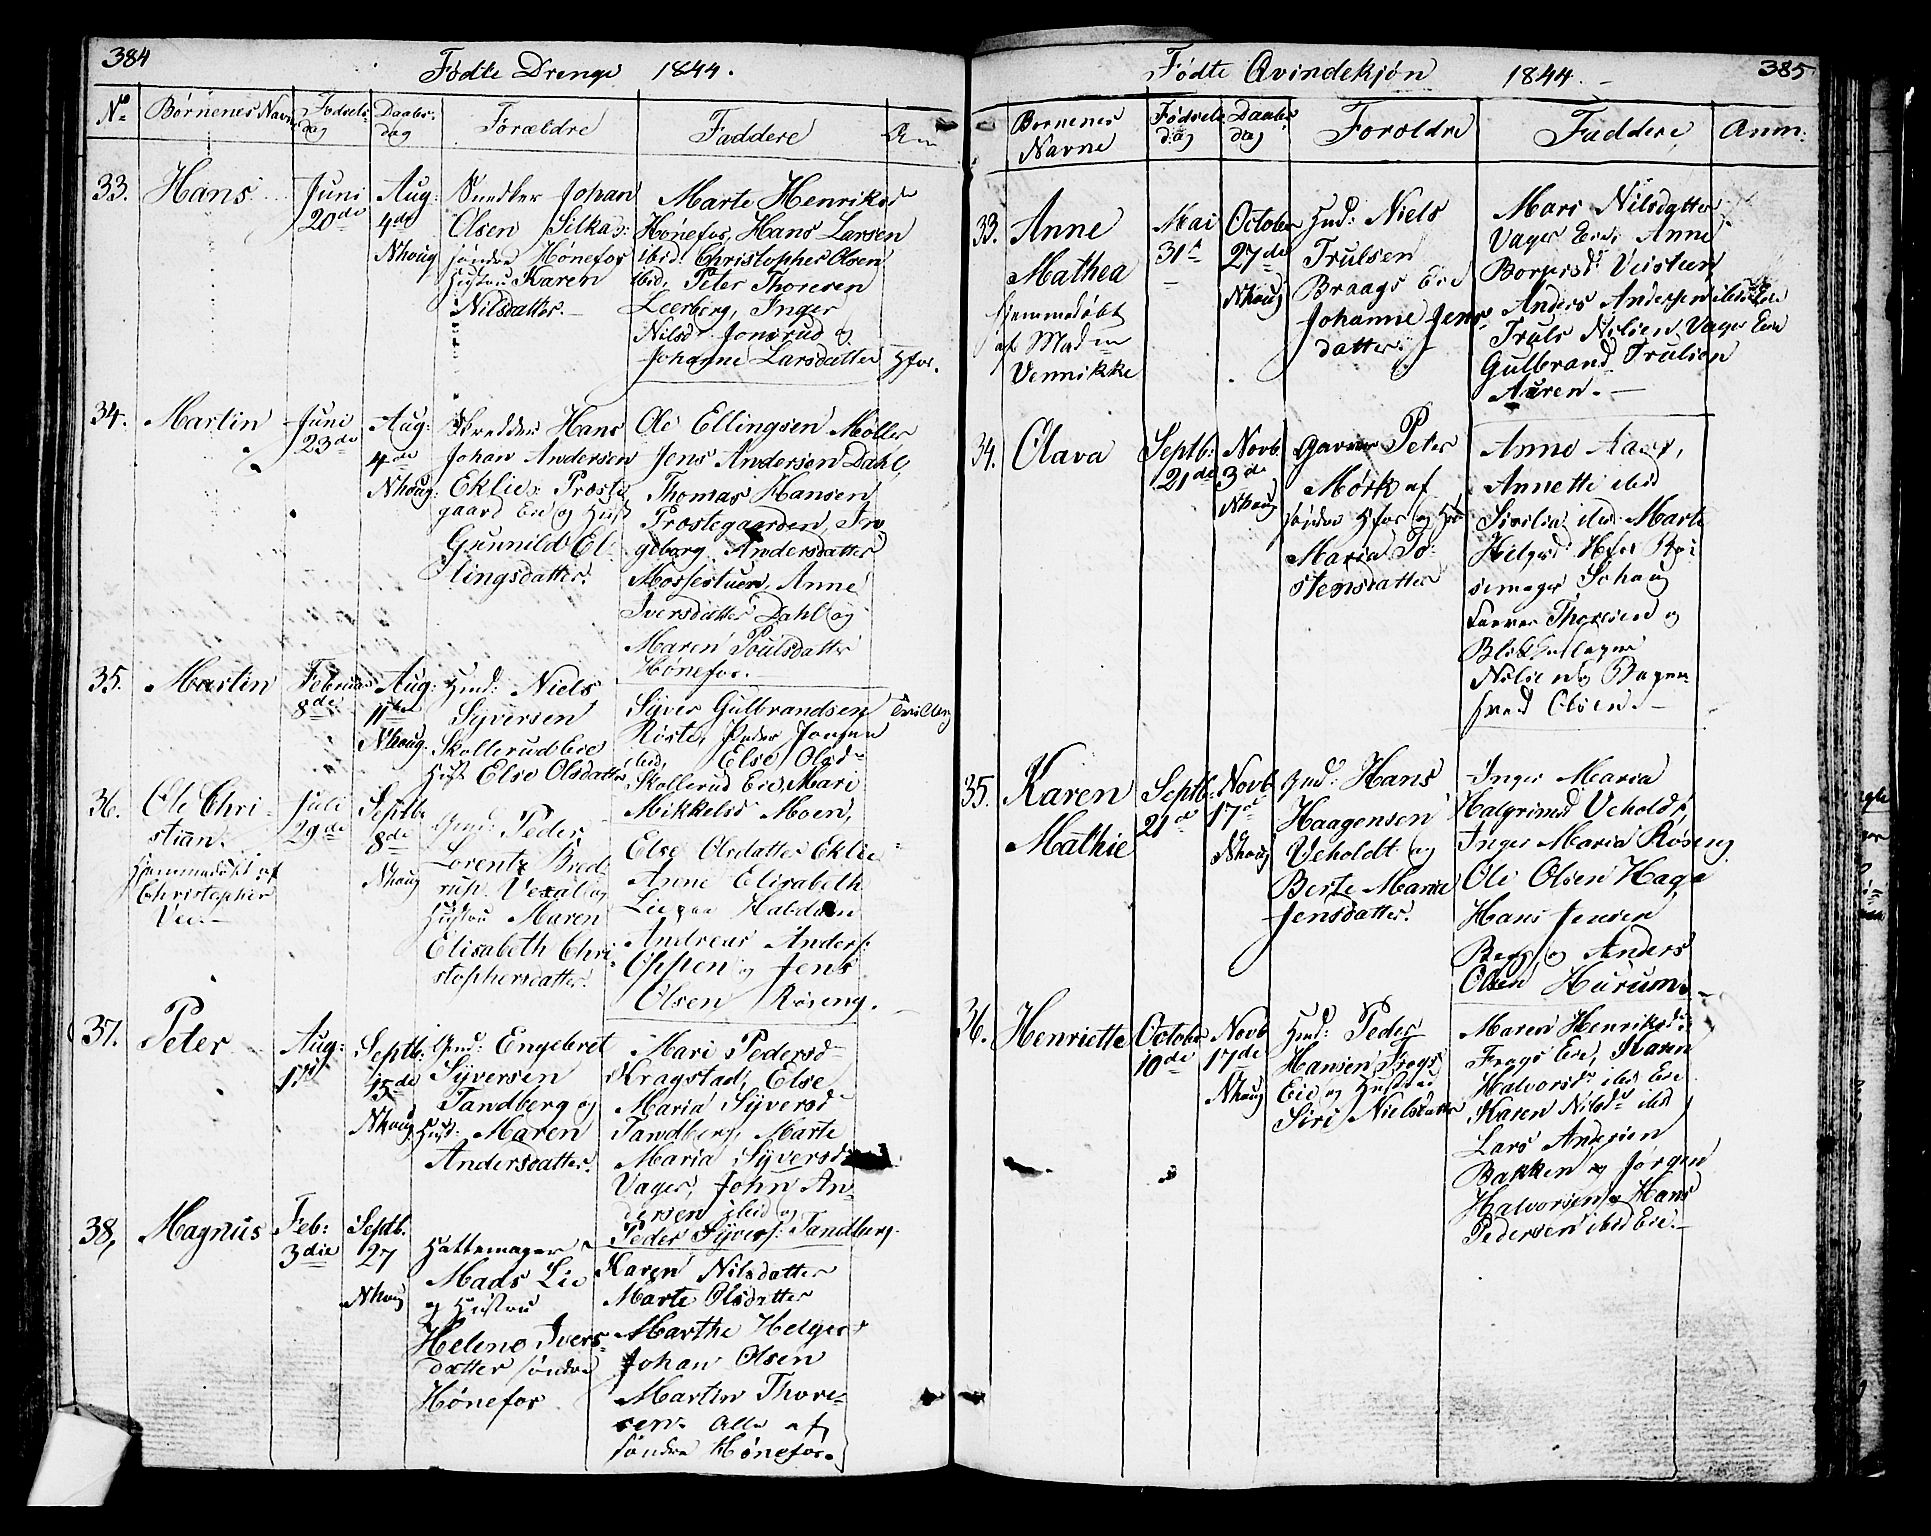 384
Fødte Drenge 1844.
No Børnenes Navne Fødsels dag Daabs dag Forældre Faddere
33. Hans
Juni 20de
Aug: 4de Nhoug
Snedker Johan
Olsen
søndre Hønefos
Hustrue Karen
Nilsdatter.
Marte Henriksd
Hønefos, Hans Larsen
ibid. Christopher Olsen
ibid, Peter Thoresen
Leerberg, Inger
Nilsd. Jonsrud og
Johanne Larsdatter Hfos.
34. Martin
Juni 23de
Aug: 4de Nhoug:
Skredder Hans
Johan Andersen
Eklie Præste
gaard Eie og Hust
Gunnild El-
lingsdatter.
Ole Ellingsen Møller
Jens Andersen Dahl,
Thomas Hansen
Præstegaarden, In
geborg Andersdatter
Mossestuen, Anne
Iversdatter Dahl og
Maren Poulsdatter
Hønefos.
35. Martin
Februar 8de
Aug: 11te Nhoug.
Gmd: Niels
Syversen
Skollerud Eie
Hust Else Olsdatter
Syver Gulbrandsen
Røste, Peder Jonsen
ibid, Else Olsd
Skollerud Eie, Mari
Mikkelsd Moen,
Tvilling
36. Ole Chri-
stian.
Hjemmedøbt af
Christopher
Vee.
Juli 29de
Septb. 8de Nhoug
Gmd: Peder
Lorentz Bred-
rup. Vexal og
Hustru Maren
Elisabeth Chri-
stophersdatter.
Else Olsdatter Eklie
Anne Elisabeth
Lie
Andreas Anders:
Oppen og Jens
Olsen Røseng.
37. Peter
Aug: 17
Septb: 15de Nhoug
Gmd: Engebret
Syversen
Tandberg og
Hust: Maren
Andersdatter.
Mari Pedersd
Kragstad, Else
Maria Syversd
Tandberg, Marte
Maria Syversd
Vager, John An-
dersen ibid og
Peder Syvers: Tandberg.
38, Magnus
Feb: 3die
Septb. 27 Nhoug
Hattemager
Mads Lie
og Hustru
Helene Ivers-
datter søndre
Hønefos
Karen Nilsdatter
Marte Olsdatter
Marthe Helges
Johan Olsen
Martin Thore-
sen. Alle af
søndre Hønefos.
385
Fødte Qvindekjøn 1844.
Børnenes Navne Fødsels dag Daabs dag Forældre Faddere Anm:
33. Anne
Mathea
hjemmedøbt
af Madm
Vennikke
Mai 31t
October 27de Nhoug
Gmd: Niels
Trulsen
Braags Eie
Johanne Jens
datter.
Mari Nilsdatter
Vager Eie, Anne
Borgersd: Veisteen
Anders Andersen ibid Eie
Truls Nilsen Vager Eie
Gulbrand Trulsen
Auren.
34. Olava
Septb: 21de
Novb 3de Nhoug
Garver Peter
Mørk af
søndre Hfos og Hu
Maria To-
stensdatter
Anne Aas,
Annette ibid
ibid Marte
Helgesd Hfos
Thoresen og
Nilsen
Olsen.
35. Karen
Mathie
Septb: 21de
Novb 17de Nhoug
Gmd: Hans
Haagensen
Veholdt og
Berte Marie
Jensdatter.
Inger Maria
Halgrimsd Veholdt,
Inger Maria Røseng
Ole Olsen Haga
Hans Jensen
Berg og Anders
Olsen Hurum.
36. Henriette
October 10de
Novb 17de Nhoug
Gmd: Peder
Hansen Frogs
Eie og Hustru
Siri Nielsdatter
Maren Henriksd:
Frogs Eie, Karen
Halvorsd: ibid Eie
Karen Nilsd: ibid
Lars Andersen
Bakken og Jørgen
Halvorsen, Hans
Pedersen ibid Eie.